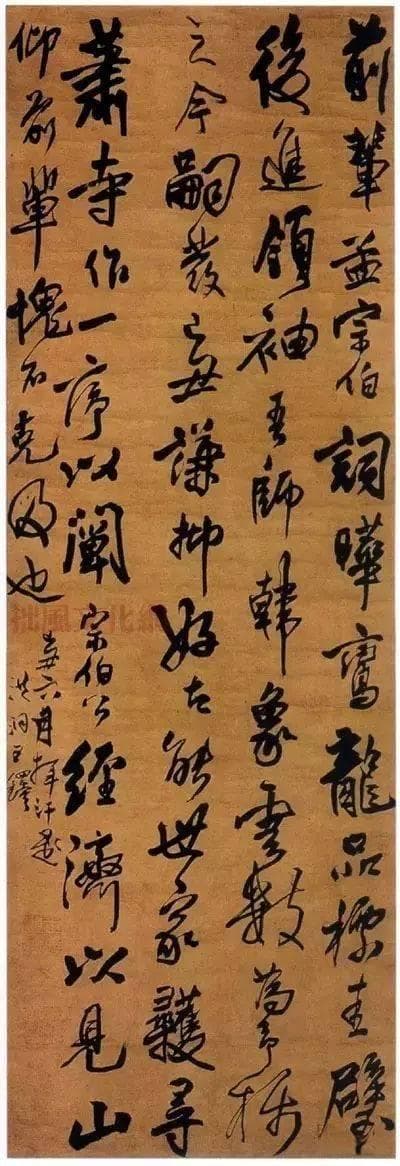 前輩孟宗伯詞曄鸞龍品標圭璧
後進領袖吾師韓象雲數為予
之今嗣發丑謙抑好古能世家尋
蕭寺作一序以闡宗伯公經濟以見山
仰前輩愧不克及也
六月揮汗書
洪洞王鐸
拙風文化網